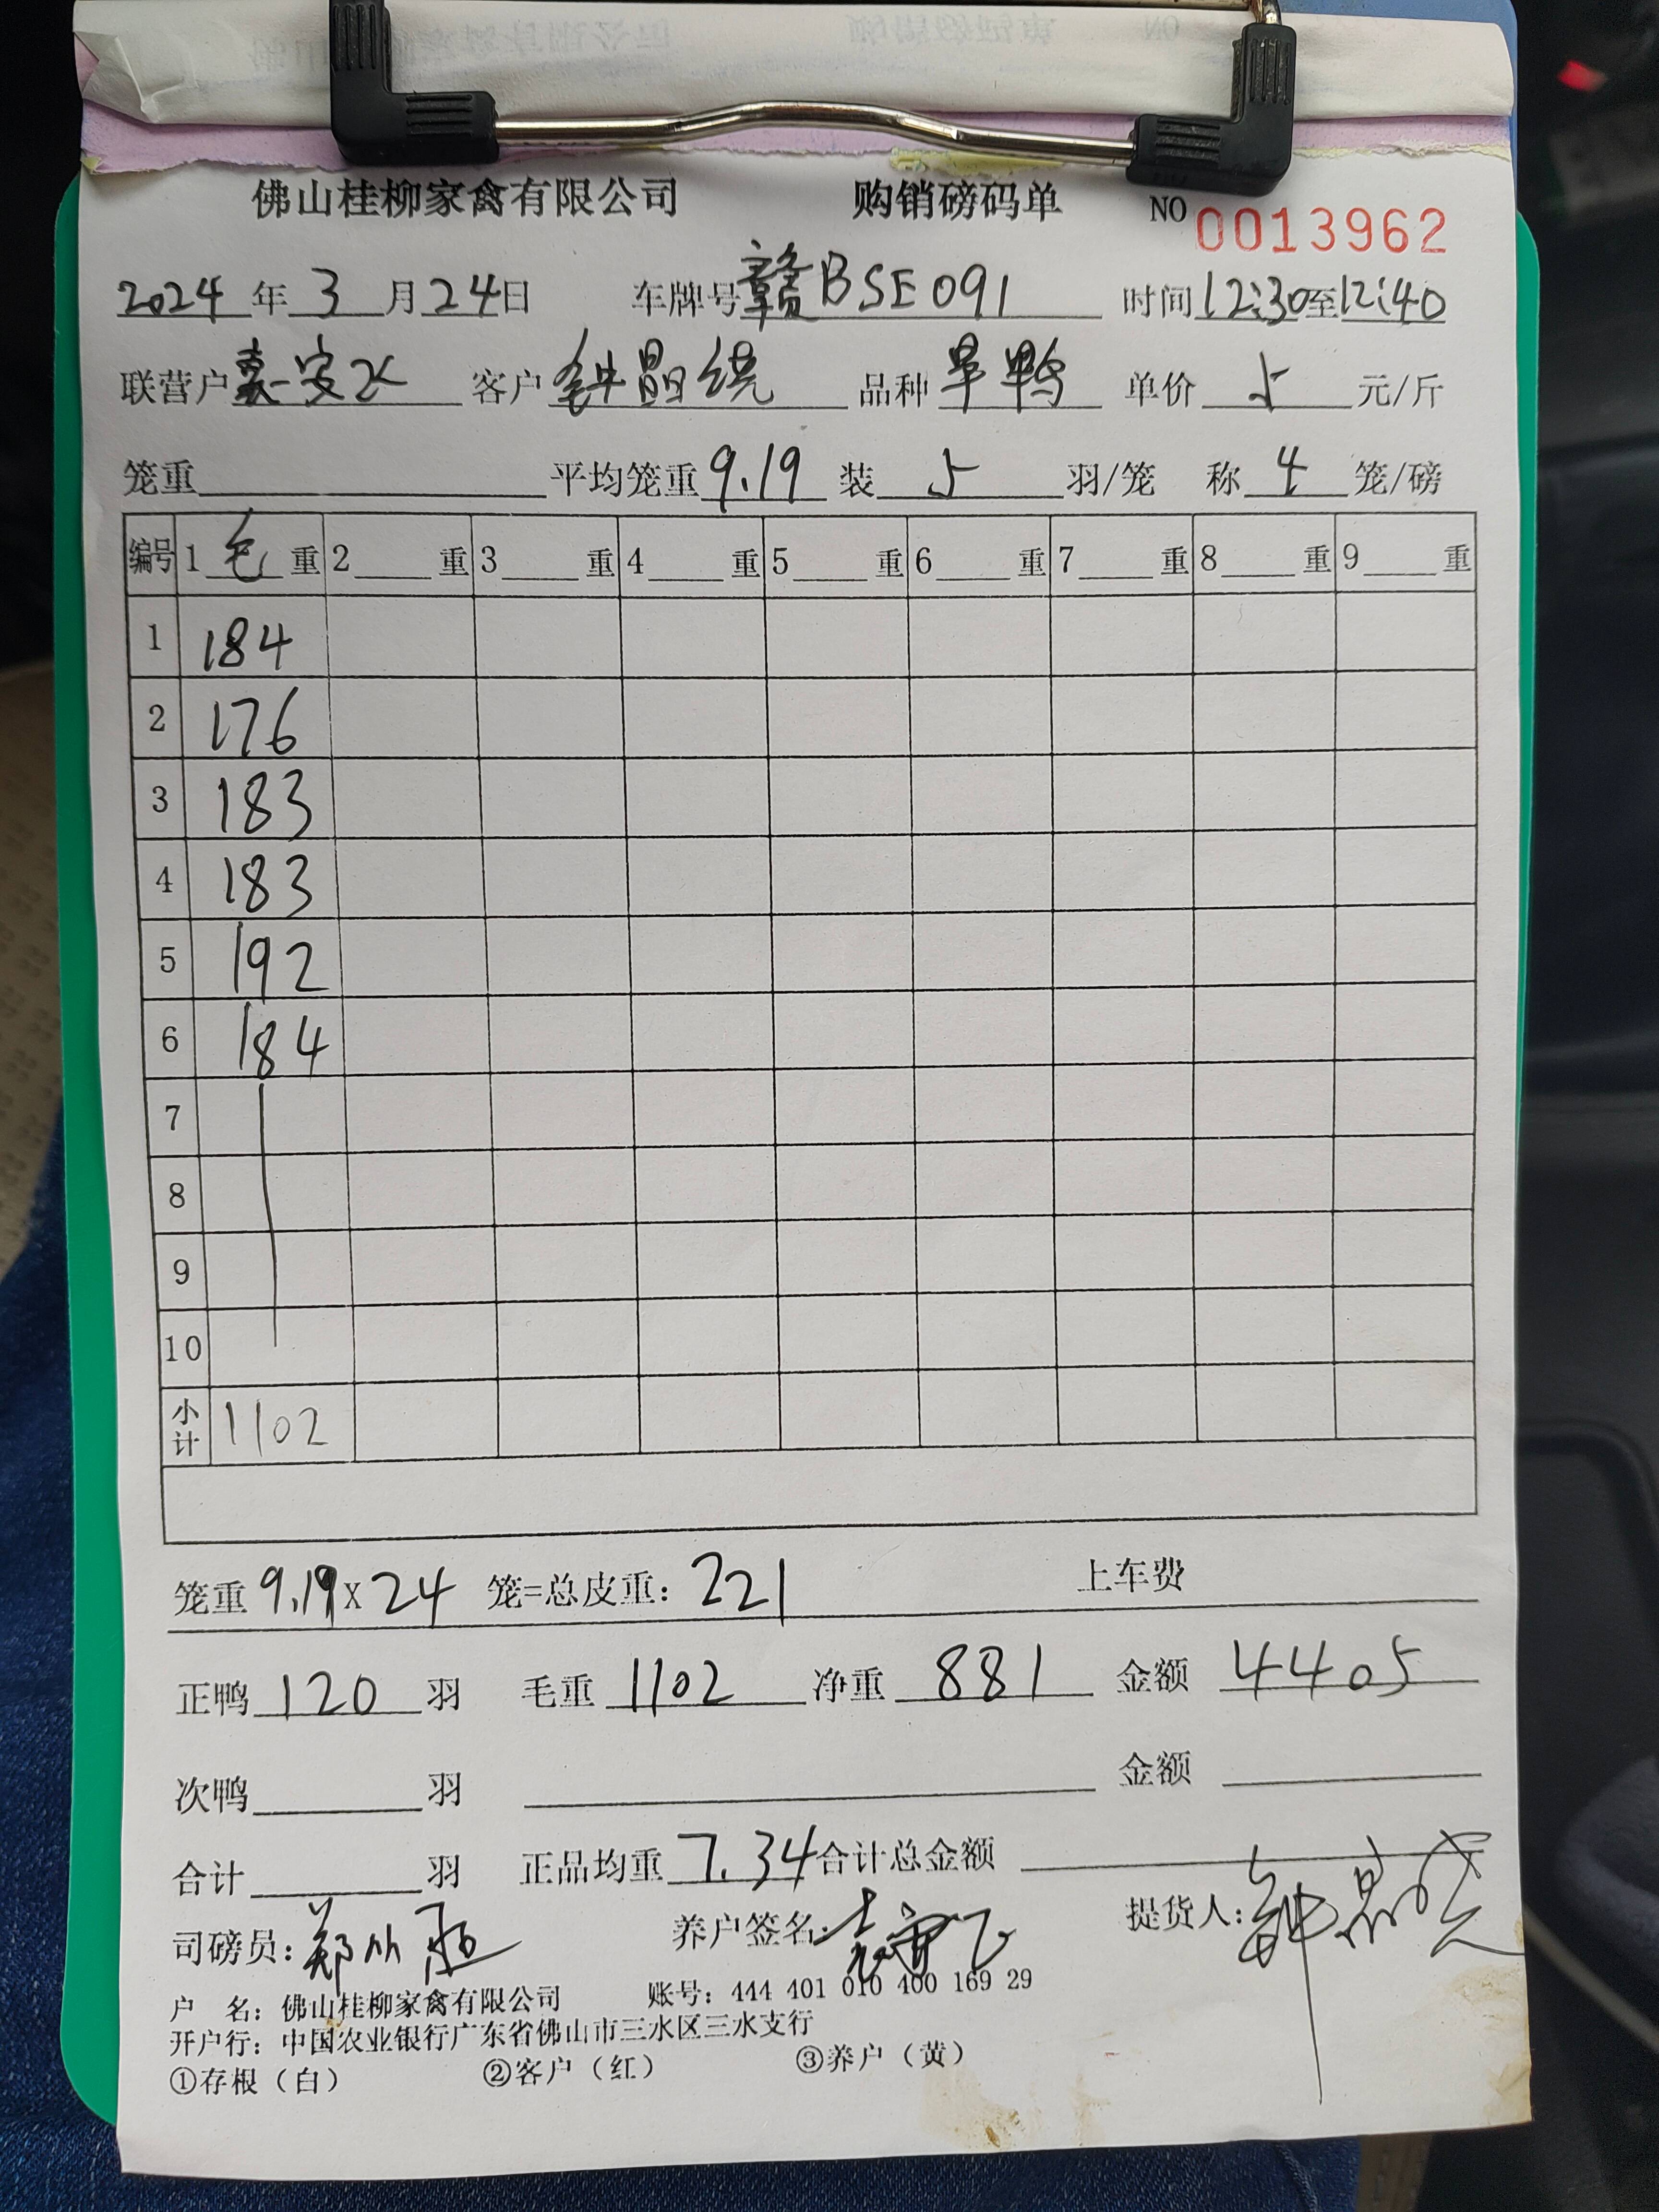 佛山桂柳家禽有限公司 购销磅码单 NO 0013962
2024年3月24日 车牌号赣BSE091 时间12:30至12:40
联营户 客户钟晶 品种旱鸭 单价5元/斤
笼重 平均笼重9.19 装5羽/笼 称4笼/磅
编号 1毛重 2重 3重 4重 5重 6重 7重 8重 9重
1 184
2 176
3 183
4 183
5 192
6 184
7
8
9
10
小计 1102
笼重9.19X24 笼=总皮重:221 上车费
正鸭120羽 毛重1102 净重881 金额4405
次鸭 羽 金额
合计 羽 正品均重7.34 合计总金额
司磅员:郑 养户签名: 提货人:钟晶
户 名:佛山桂柳家禽有限公司 账号:444 401 010 400 169 29
开户行:中国农业银行广东省佛山市三水区三水支行
①存根(白) ②客户(红) ③养户(黄)